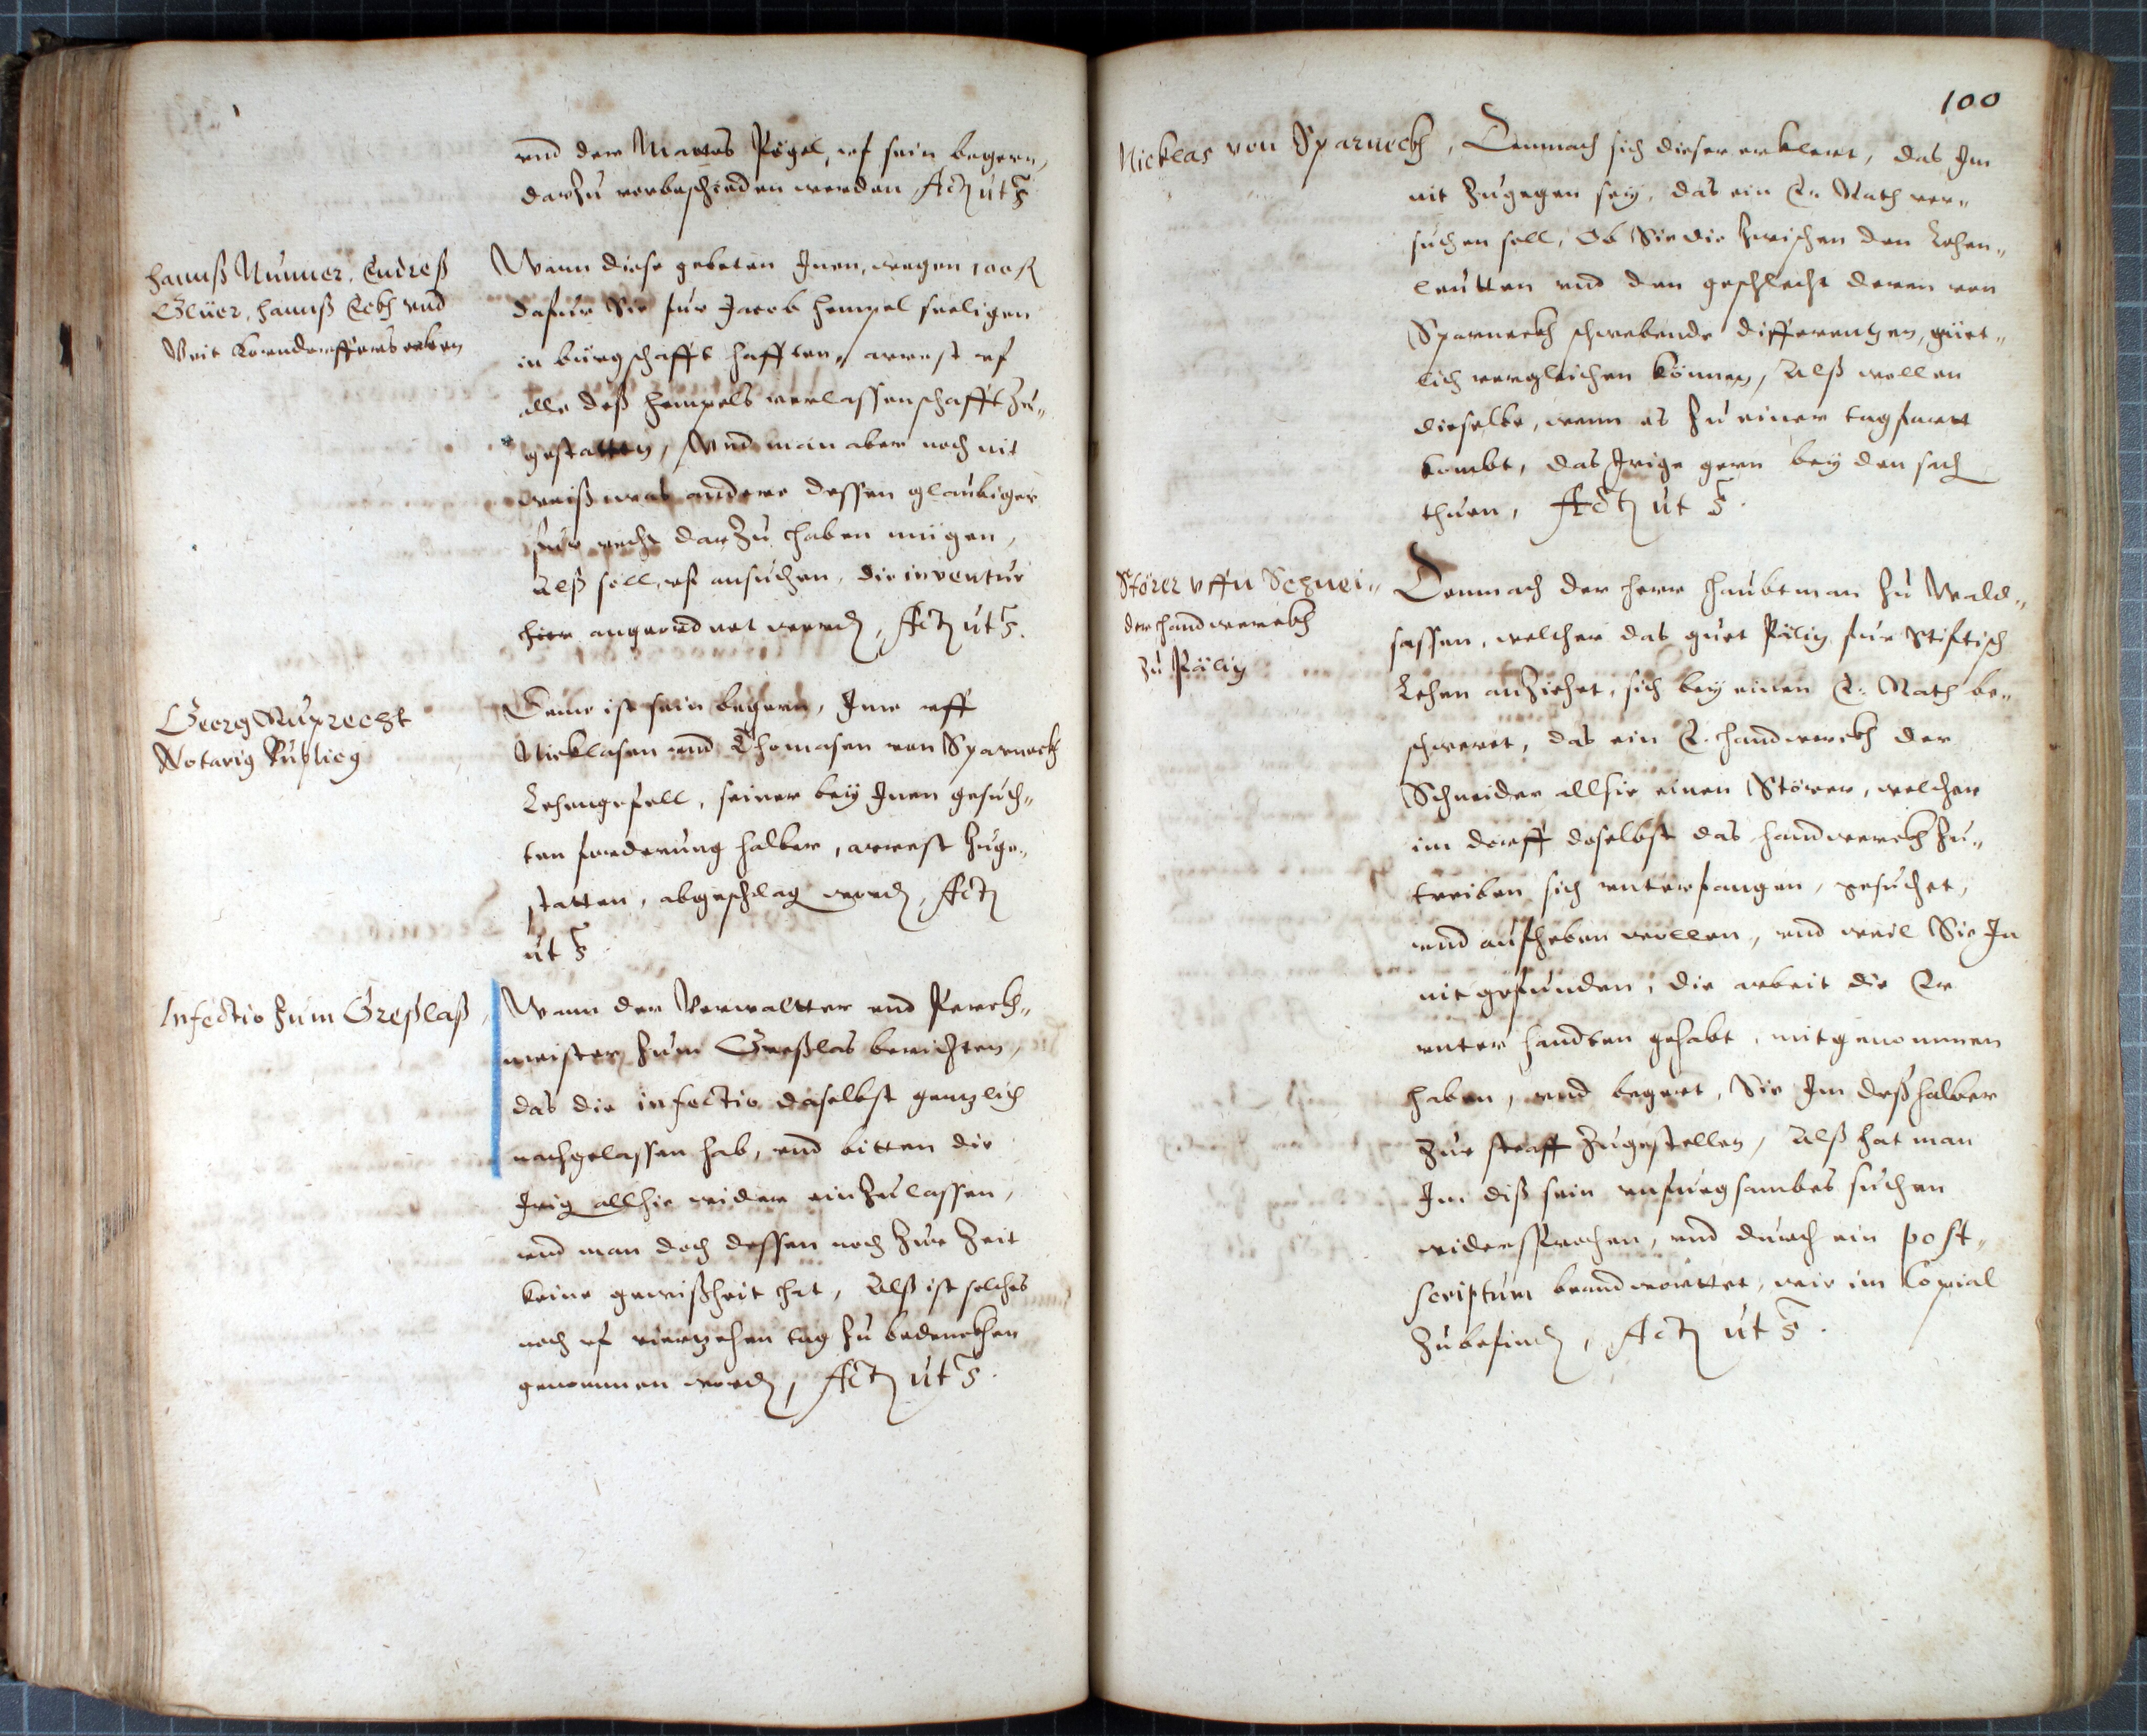 vnd der Mattes Pögel, vf sein begern,
darzu verbeschieden werden Act ut s.
Hannß Nunner, Endreß
Glüer, Hannß Eckh vnd
Veit Korndorffers erben
Wann diese gebeten Inen, wegen 100 fl
dafur Sie fur Jacob Hempel seeligen
in bürgschafft hafften, arrest vf
alle deß Hempels verlassenschafft zu„
gestatten, Vnd man aber noch nit
weiß was andere dessen glaubiger
fur recht darzu haben mügen,
Alß soll, vf ansuchen, die inventur
hier angeordnet werd, Act ut s.
Georg Ruprecht
Notarig Publicg
Deme ist sein begern, Ime vff
Nicklasen vnd Thomasen von Sparneckh
Lehengefell, seiner bey Inen gesuch„
ten forderung halber, arrest zuge„
statten, abgeschlag word, Act
ut s.
Infectio zum Greßlaß,
Wann der Verwaltter vnd Perckh„
meister zum Greßlas berichten,
das die infectio daselbst gentzlich
nachgelassen hab, vnd bitten die
Irig allhie wider einzulassen,
vnd man doch dessen noch zur Zeit
keine gewißheit hat, Alß ist solches
noch vf vierzehen tag zu bedenckhen
genommen word, Act ut s.
100
Nicklas von Sparneckh,
Demnach sich dieser erklert, das Im
nit zugegen sey, das ein E. Rath ver„
suchen soll, Ob Sie die zwischen den Lehen„
leutten vnd den geschlecht deren von
Sparneckh schwebende differentzen, güet„
lich vergleichen können, Alß wollen
dieselbe, wenn es zu einer tagfart
kombt, das Irige gern bey den sach
thuen, Act ut s.
Störer vffn Schnei„
der handwerckh
zu Pölig
Demnach der herr Haubtman zu Wald„
sassen, welcher das guet Pölig fur Stiftisch
Lehen anziehet, sich bey einen E. Rath be„
schwert, das ein E. handwerckh der
Schneider allhie einen Störer, welcher
im dorff daselbst das handwerckh zu„
treiben sich unterfangen, gesuchet,
vnd aufheben wollen, vnd weil Sie In
nit gefunden, die arbeit die Er
unter handten gehabt, mitgenommen
haben, vnd begert, Sie Im deßhalber
zur straff zugestellen, Alß hat man
Im diß sein unfuegsambes suchen
widersprochen, vnd durch ein post„
scriptum beandworttet, wie im Copial
zubefind, Act ut s.